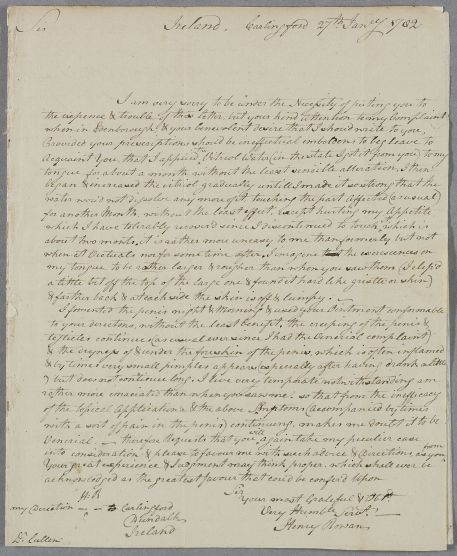 Sir Ireland. Carlingford 27th Janry 1782
I am very sorry to be under the Necessity of puting you to
the expence & trouble of this letter, but your kind attention to my Complaint
when in Edenborough, & your benevolent desire that I should write to you,
(Provided your prescriptions should be ineffectual emboldens to beg leave to
acquaint you that I applied the Vitriol Water (in the state I got it from you) to my
tongue for about a month without the least sensible alteration. I then
began & increased the vitriol gradually untill I made it so strong that the
water wou'd not disolve any more of it, touching the part Affected (as usual)
for another Month without the least effect, except hurting my Appetite
which I have tolerably recovered since I discontinued to touch it, which is
about two months, it is rather more uneasy to me than formerly but not
when it Actuals nor for some time after. I imagine the excrescences on
my tongue to be rather larger & rougher than when you saw them (I clip'd
a little bit off the top of the large one & found it hard like gristle or skin)
& farther back & at each side the skin is off & lumpy.
I fomented the penis night & Morning & used your Ointment conformable
to your directions, without the least benefit, the creeping of the penis &
testicles continue (as usual ever since I had the Venerial complaint)
& the dryness of & under the foreskin of the penis, which is often enflamed
& by times very small pimples appears (especially after having drank a little
) but does not continue long. I live very temperate notwithstanding am
rather more emaciated than when you saw me: so that from the inefficacy
of the topical Applications & the above Symptoms (accompanied by times
with a sort of pain in the penis) continuing, makes me doubt it to be
Venerial. – therefor Requests that you will again take my peculiar case
into consideration & please to favour me with such advice & Directions as from
your great experience & Judgment may think proper, which shall ever be
acknowledged as the greatest favour that could be confer'd upon
H:R Sir
my Direction – – to Carlingford Your most Grateful &
Dundalk Very Humble Servt.
Ireland Henry Rowan
Dr. Cullen